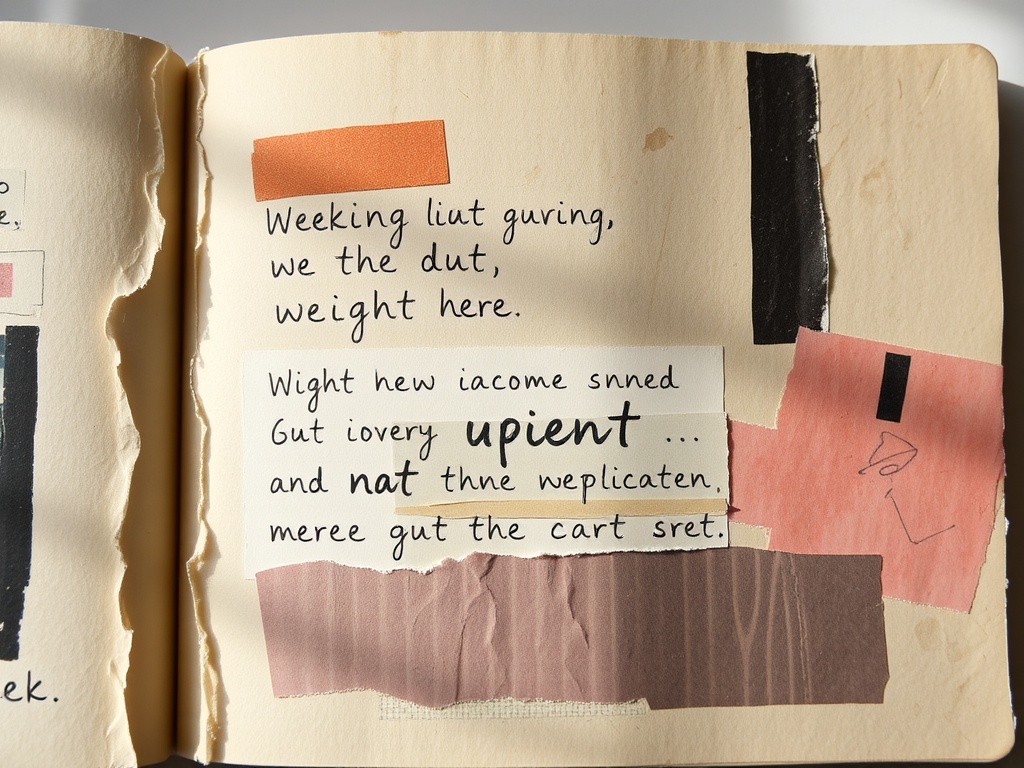 o
e.
ek.
Weeking liut guring,
we the dut,
weight here.
Wight hew iacome snned
Gut iovery upient ...
and nat thne weplicaten.
meree gut the cart sret.